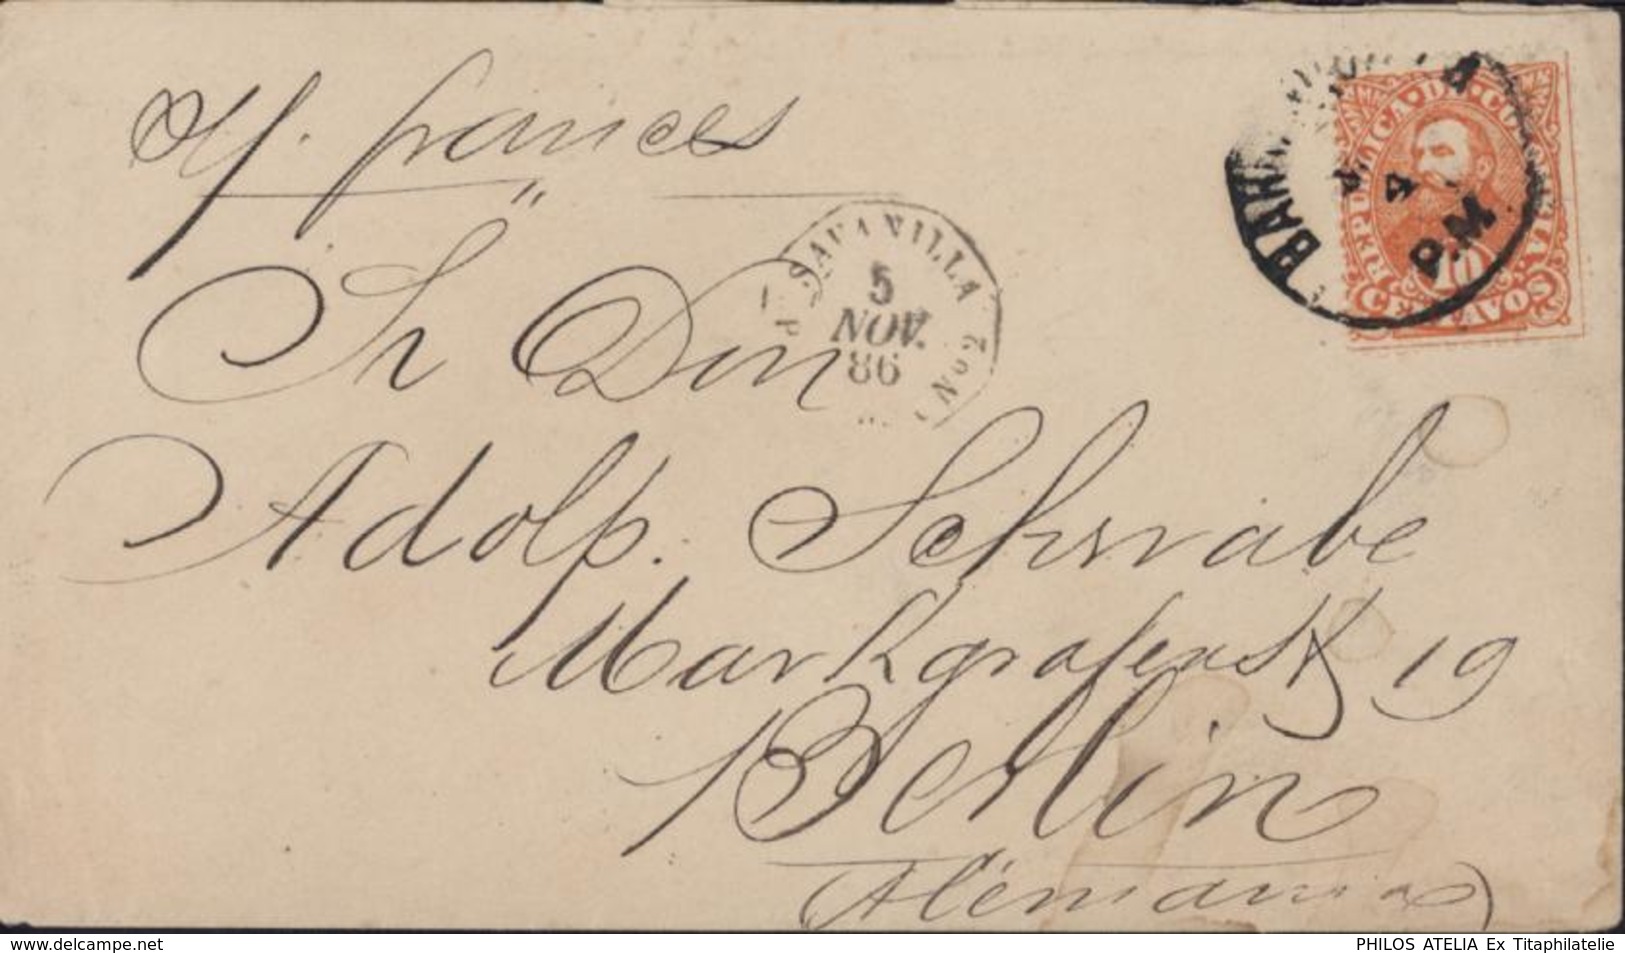 francés
Sr Don
Adolf. Schwabe
Markgrafenstr 19
Berlin
(Alemania)
SAVANILLA
5
NOV.
86
No 2
BARRANQUILLA
4
P.M
REPUBLICA DE COLOMBIA
10
CENTAVOS
www.delcampe.net
PHILOS ATELIA Ex Titaphilatelie